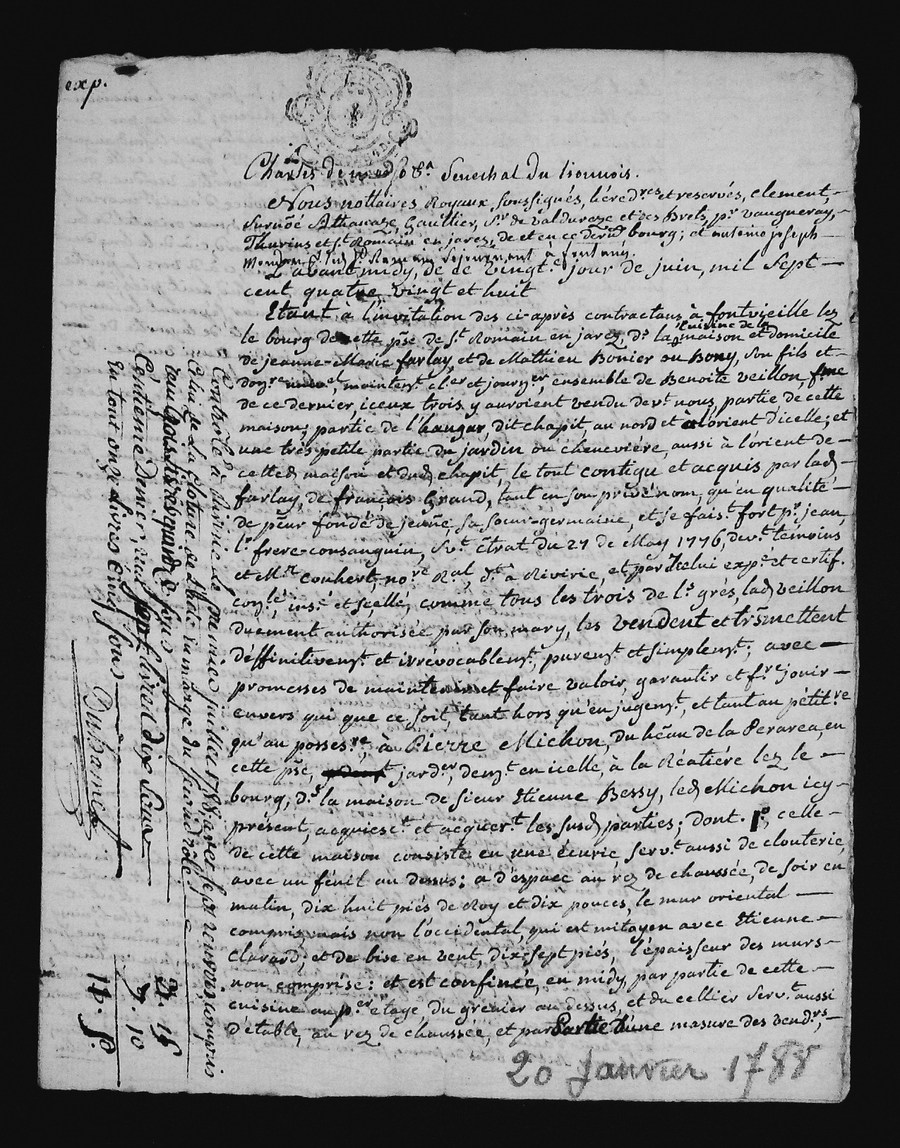 exp.
Senechal du Lionnois.
Nous nottaires Royaux soussignés, héréd.res et reservés, Clement,
Athanaze, Gaultier, S.r de Valduraze et des Brets, p.r Vaugneray,
Thurins et S.t Romain en jarez, de et en ce dernier bourg; et antoine joseph
avant midy, de ce vingt.e jour de juin, mil sept
cent quatre vingt et huit
Etant à l'invitation des ci-après contractans à fontvieille lez
le bourg de cette pse de S.t Romain en jarez, d.s la cuisine de la maison et domicile
de jeanne-Marie farlay, et de Mathieu Bonier ou Bony, son fils et
maintent. et jour.er, ensemble de Benoite veillon fme
de ce dernier, iceux trois y auroient vendu dev.t nous, partie de cette
maison; partie de l'hangar, dit chapit, au nord et à l'orient d'icelle; et
une très petite partie du jardin ou cheneviére, aussi à l'orient de
cetted. maison et dud. chapit, le tout contigu et acquis par lad.
farlay, de françois Grand, tant en son privé nom, qu'en qualité
de p.eur fondé de jeane, sa soeur-germaine, et se fais.t fort p.r jean,
l.r frere-consanguin, s.vt c̃trat du 27 de May 1776, dev.t temoins
et M.re Couhert, no.re Ral, d.t a Riverie, et par icelui exp.é et certif.
con.lé, ins.é et scellé, comme tous les trois de l.rs grés, lad. veillon
duement authorisée par son mary, les vendent et tr̃smettent
déffinitivem.t et irrévocablem.t, purem.t et simplem.t; avec
promesses de maintenir et faire valoir, garantir et f.re jouir
envers qui que ce soit, tant hors qu'en jugem.t, et tant au pétit.re
qu'au posses.re, à Pierre Michon, du hẽau de la Perarea, en
cette pse, jard.er, dem.t en icelle, à la Réatiére lez le
bourg, d.s la maison de sieur Etienne Bessy, led. Michon icy
présent, acquiesc.t et acquer.t les susd. parties; dont. 1.o, celle
de cette maison consiste en une écurie, serv.t aussi de clouterie,
avec un fénil au dessus; a d'espace au rez de chaussée, de soir en
matin, dix huit piés de Roy et dix pouces, le mur oriental
compris, mais non l'occidental, qui est mitoyen avec Etienne
Clavard; et de bise en vent, dix sept piés, l'épaisseur des murs
non comprise: et est confinée, en midy, par partie de cette
cuisine au p.er étage du grenier au dessus, et du cellier serv.t aussi
d'etable, au rez de chaussée, et par partie d'une masure des vend.rs,
20 Janvier 1788
Controlé à Riverie le premier juillet 1788, avec sept renvois compris
celui de la cloture de l'acte en marge du second rôle.
reçu trois livres quinze sous 3. 15
Centieme Denier, reçu sept livres dix sous 7. 10
En tout onze livres cinq sous 11. 5.
Duhamel